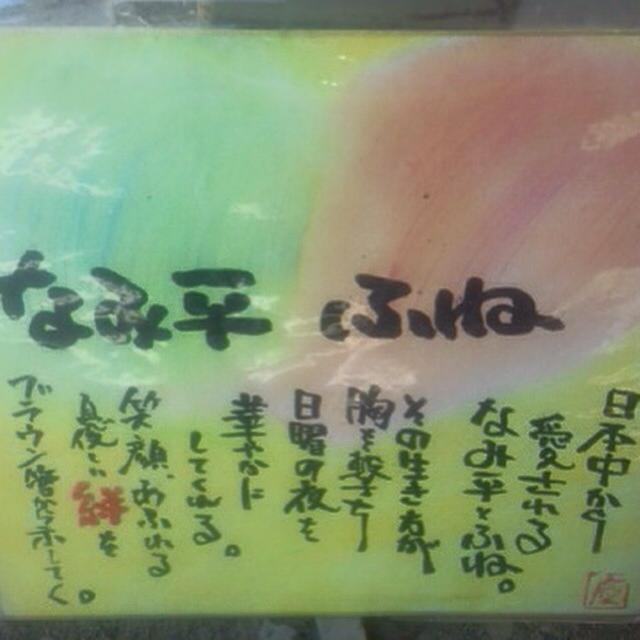 なみ平 ふね
日本中から
愛される
なみ平とふね。
その生き方が
胸を撃ち
日曜の夜を
華やかに
してくれる。
笑顔あふれる
優しい絆を
ブラウン管が示してく
。